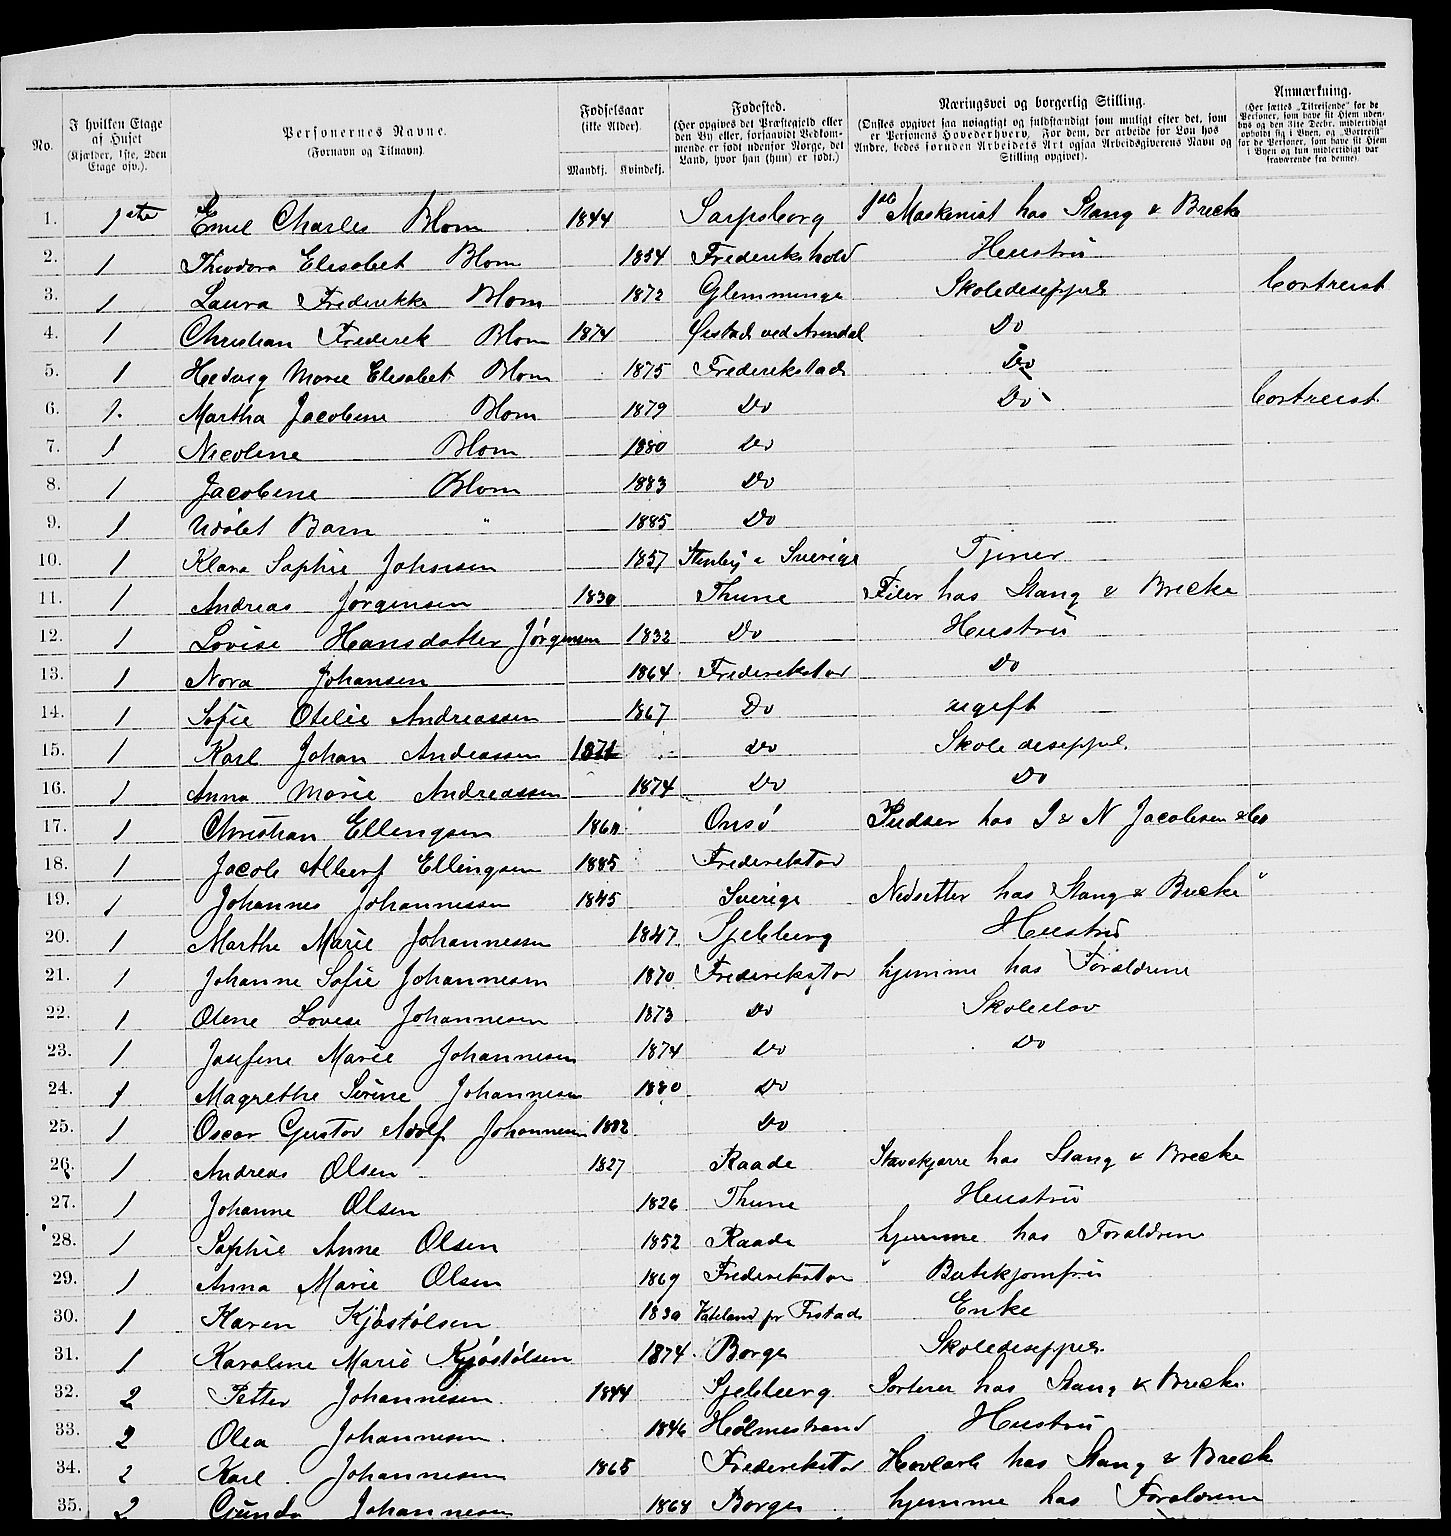 No. | I hvilken Etage af Huset (Kjælder, 1ste, 2den Etage osv.). | Personernes Navne. (Fornavn og Tilnavn). | Fødselsaar (ikke Alder). Mandkj. | Kvindekj. | Fødested. (Her opgives det Præstegjeld eller den By eller, forsaavidt Vedkommende er født udenfor Norge, det Land, hvor han (hun) er født.) | Næringsvei og borgerlig Stilling. (Ønskes opgivet saa nøiagtigt og fuldstændigt som muligt efter det, som er Personens Hovederhverv. For dem, der arbeide for Løn hos Andre, bedes foruden Arbeidets Art ogsaa Arbeidsgiverens Navn og Stilling opgivet). | Anmærkning. (Her sættes „Tilreisende“ for de Personer, som have sit Hjem udenbys og den 31te Decbr. midlertidigt opholdt sig i Byen, og „Bortreist“ for de Personer, som have sit Hjem i Byen og kun midlertidigt var fraværende fra denne).
1. 1ste Emil Charles Blom 1844 Sarpsborg 1ste Maskinist hos Stang & Brecke
2. 1 Theodora Elisabet Blom 1854 Frederikshald Hustru
3. 1 Laura Frederikke Blom 1872 Glemminge Skoledisippel Bortreist
4. 1 Christian Frederik Blom 1874 Øistad ved Arendal Do
5. 1 Hedvig Marie Elisabet Blom 1875 Frederikstad Do
6. 1. Martha Jacobine Blom 1879 Do Do Bortreist
7. 1 Nicoline Blom 1880 Do
8. 1 Jacobine Blom 1883 Do
9. 1 Udøbt Barn " 1885 Do
10. 1 Klara Sophie Johnsen 1857 Stenby i Sverige Tjener
11. 1 Andreas Jørgensen 1830 Thune Filer hos Stang & Brecke
12. 1 Lovise Hansdatter Jørgensen 1832 Do Hustru
13. 1 Nora Johansen 1864 Frederikstad Do
14. 1 Sofie Otelie Andreassen 1867 Do ugift
15. 1 Karl Johan Andreassen 1871 Do Skoledisippel.
16. 1 Anna Marie Andreassen 1874 Do Do
17. 1 Christian Ellingsen Onsø Pudser hos I & N Jacobsen & Co
18. 1 Jacob Albert Ellingsen 1885 Frederikstad
19. 1 Johannes Johannessen 1845 Sverige Nedsetter hos Stang & Brecke "
20. 1 Marthe Marie Johannessen 1847. Sjebberg Hustru
21. 1 Johanne Sofie Johannesen 1870 Frederikstad hjemme hos Foraldrene
22. 1 Oline Lovise Johannesen 1873 Do Skoleelev
23. 1 Josefine Marie Johannesen 1874 Do Do
24. 1 Magrethe Sirine Johannesen 1880 Do
25. 1 Oscar Gustav Adolf Johannesen 1882 Do
26. 1 Andreas Olsen 1827 Raade Stavskjærer hos Stang & Brecke
27. 1 Johanne Olsen 1826 Thune Hustru
28. 1 Sophie Anne Olsen 1852 Raade hjemme hos Foraldrene
29. 1 Anna Marie Olsen 1869 Frederikstad " Butikjomfru
30. 1 Karen Kjøstølsen 1830 pr Frstad Enke
31. 1 Karoline Marie Kjøstølsen 1874. Borge Skoledisippel.
32. 2 Petter Johannesen. 1844 Sjebberg Sorterer hos Stang & Brecke.
33. 2 Olea Johannesen. 1846 Holmestrand Hustru
34. 2 Karl Johannesen 1865 Frederikstad Høvlearb hos Stang & Brecke
35. 2 Gunda Johannesen 1868 Borge hjemme hos Foraldrene